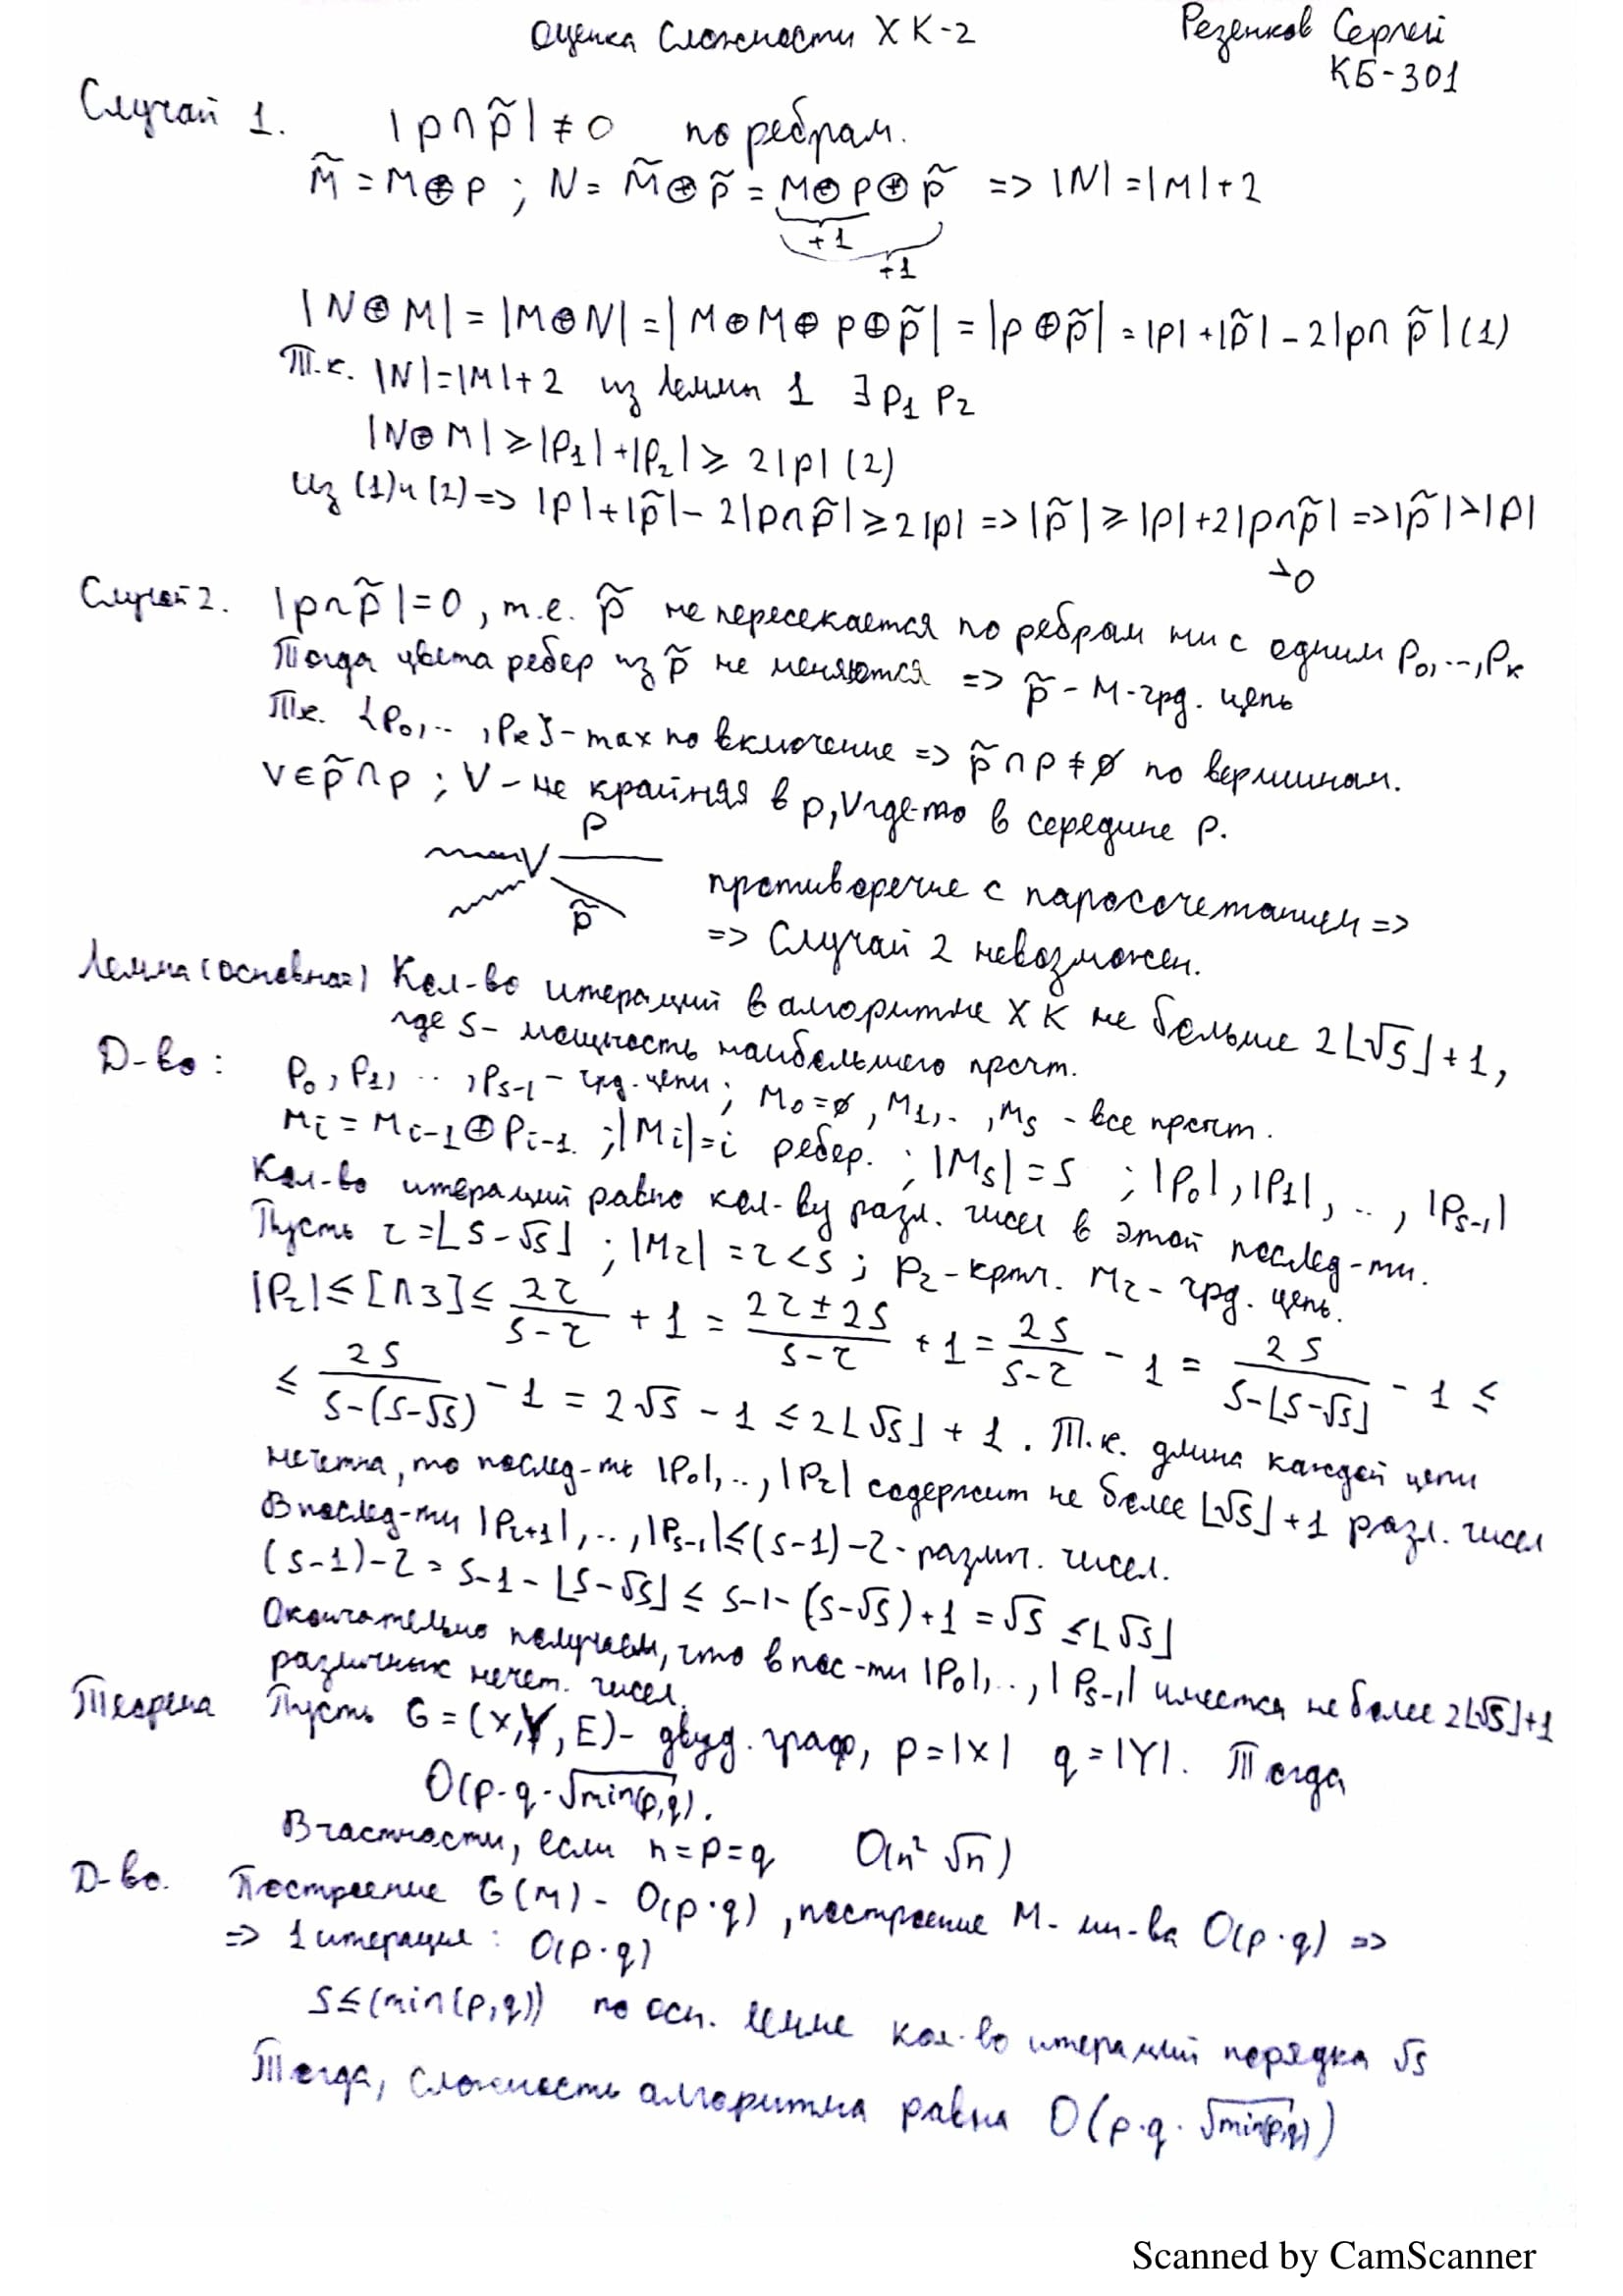 Оценка Сложности ХК-2
Резенков Сергей
КБ-301
Случай 1. |p∩p̃| ≠ 0 по ребрам.
M̃ = M⊕p ; N = M̃⊕p̃ = M⊕p⊕p̃ => |N| = |M| + 2
+1
+1
|N⊕M| = |M⊕N| = |M⊕M⊕p⊕p̃| = |p⊕p̃| = |p| + |p̃| - 2|p∩p̃| (1)
Т.к. |N| = |M| + 2 из Леммы 1 ∃ p₁ p₂
|N⊕M| ⩾ |p₁| + |p₂| ⩾ 2|p| (2)
Из (1) и (2) => |p| + |p̃| - 2|p∩p̃| ⩾ 2|p| => |p̃| ⩾ |p| + 2|p∩p̃| => |p̃| > |p|
>0
Случай 2. |p∩p̃| = 0, т.е. p̃ не пересекается по ребрам ни с одним p₀,..,pₖ
Тогда цвета ребер из p̃ не меняются => p̃ - M-чрд. цепь
Тк. {p₀,..,pₖ} - max по включение => p̃∩p ≠ ∅ по вершинам.
V ∈ p̃∩p ; V - не крайняя в p, V где-то в середине p.
p
V
p̃
противоречие с паросочетанием =>
=> Случай 2 невозможен.
Лемма (основная) Кол-во итераций в алгоритме ХК не больше 2⌊√s⌋ + 1,
где s - мощность наибольшего прст.
Д-во: p₀, p₁, .., pₛ₋₁ - чрд. цепи ; M₀ = ∅, M₁,.., Mₛ - все прст.
Mᵢ = Mᵢ₋₁ ⊕ pᵢ₋₁. ; |Mᵢ| = i ребер. ; |Mₛ| = s ; |p₀|, |p₁|, .., |pₛ₋₁|
Кол-во итераций равно кол-ву разл. чисел в этой послед-ти.
Пусть r = ⌊s-√s⌋ ; |Mᵣ| = r < s ; pᵣ - крч. Mᵣ - чрд. цепь.
|pᵣ| ≤ [Л3] ≤ 2r/(s-r) + 1 = (2r ± 2s)/(s-r) + 1 = 2s/(s-r) - 1 = 2s/(s-⌊s-√s⌋) - 1 ≤
≤ 2s/(s-(s-√s)) - 1 = 2√s - 1 ≤ 2⌊√s⌋ + 1. Т.к. длина каждой цепи
нечетна, то послед-ть |p₀|,..,|pᵣ| содержит не более ⌊√s⌋ + 1 разл. чисел
В послед-ти |pᵣ₊₁|,..,|pₛ₋₁| ≤ (s-1)-r - различ. чисел.
(s-1)-r = s-1-⌊s-√s⌋ ≤ s-1-(s-√s)+1 = √s ≤ ⌊√s⌋
Окончательно получаем, что в пос-ти |p₀|,..,|pₛ₋₁| имеется не более 2⌊√s⌋+1
различных нечет. чисел.
Теорема Пусть G = (X,Y,E) - двуд. граф, p = |X| q = |Y|. Тогда
O(p·q·√min(p,q)).
В частности, если n = p = q O(n² √n)
Д-во. Построение G(M) - O(p·q), построение M- мн-ва O(p·q) =>
=> 1 итерация: O(p·q)
s ≤ (min(p,q)) по осн. лемме кол-во итераций порядка √s
Тогда, сложность алгоритма равна O(p·q·√min(p,q))
Scanned by CamScanner